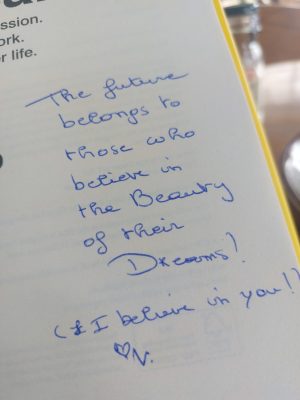 ssion.
ork.
r life.
The future
belongs to
those who
believe in
the Beauty
of their
Dreams!
(& I believe in you!!
♡N.